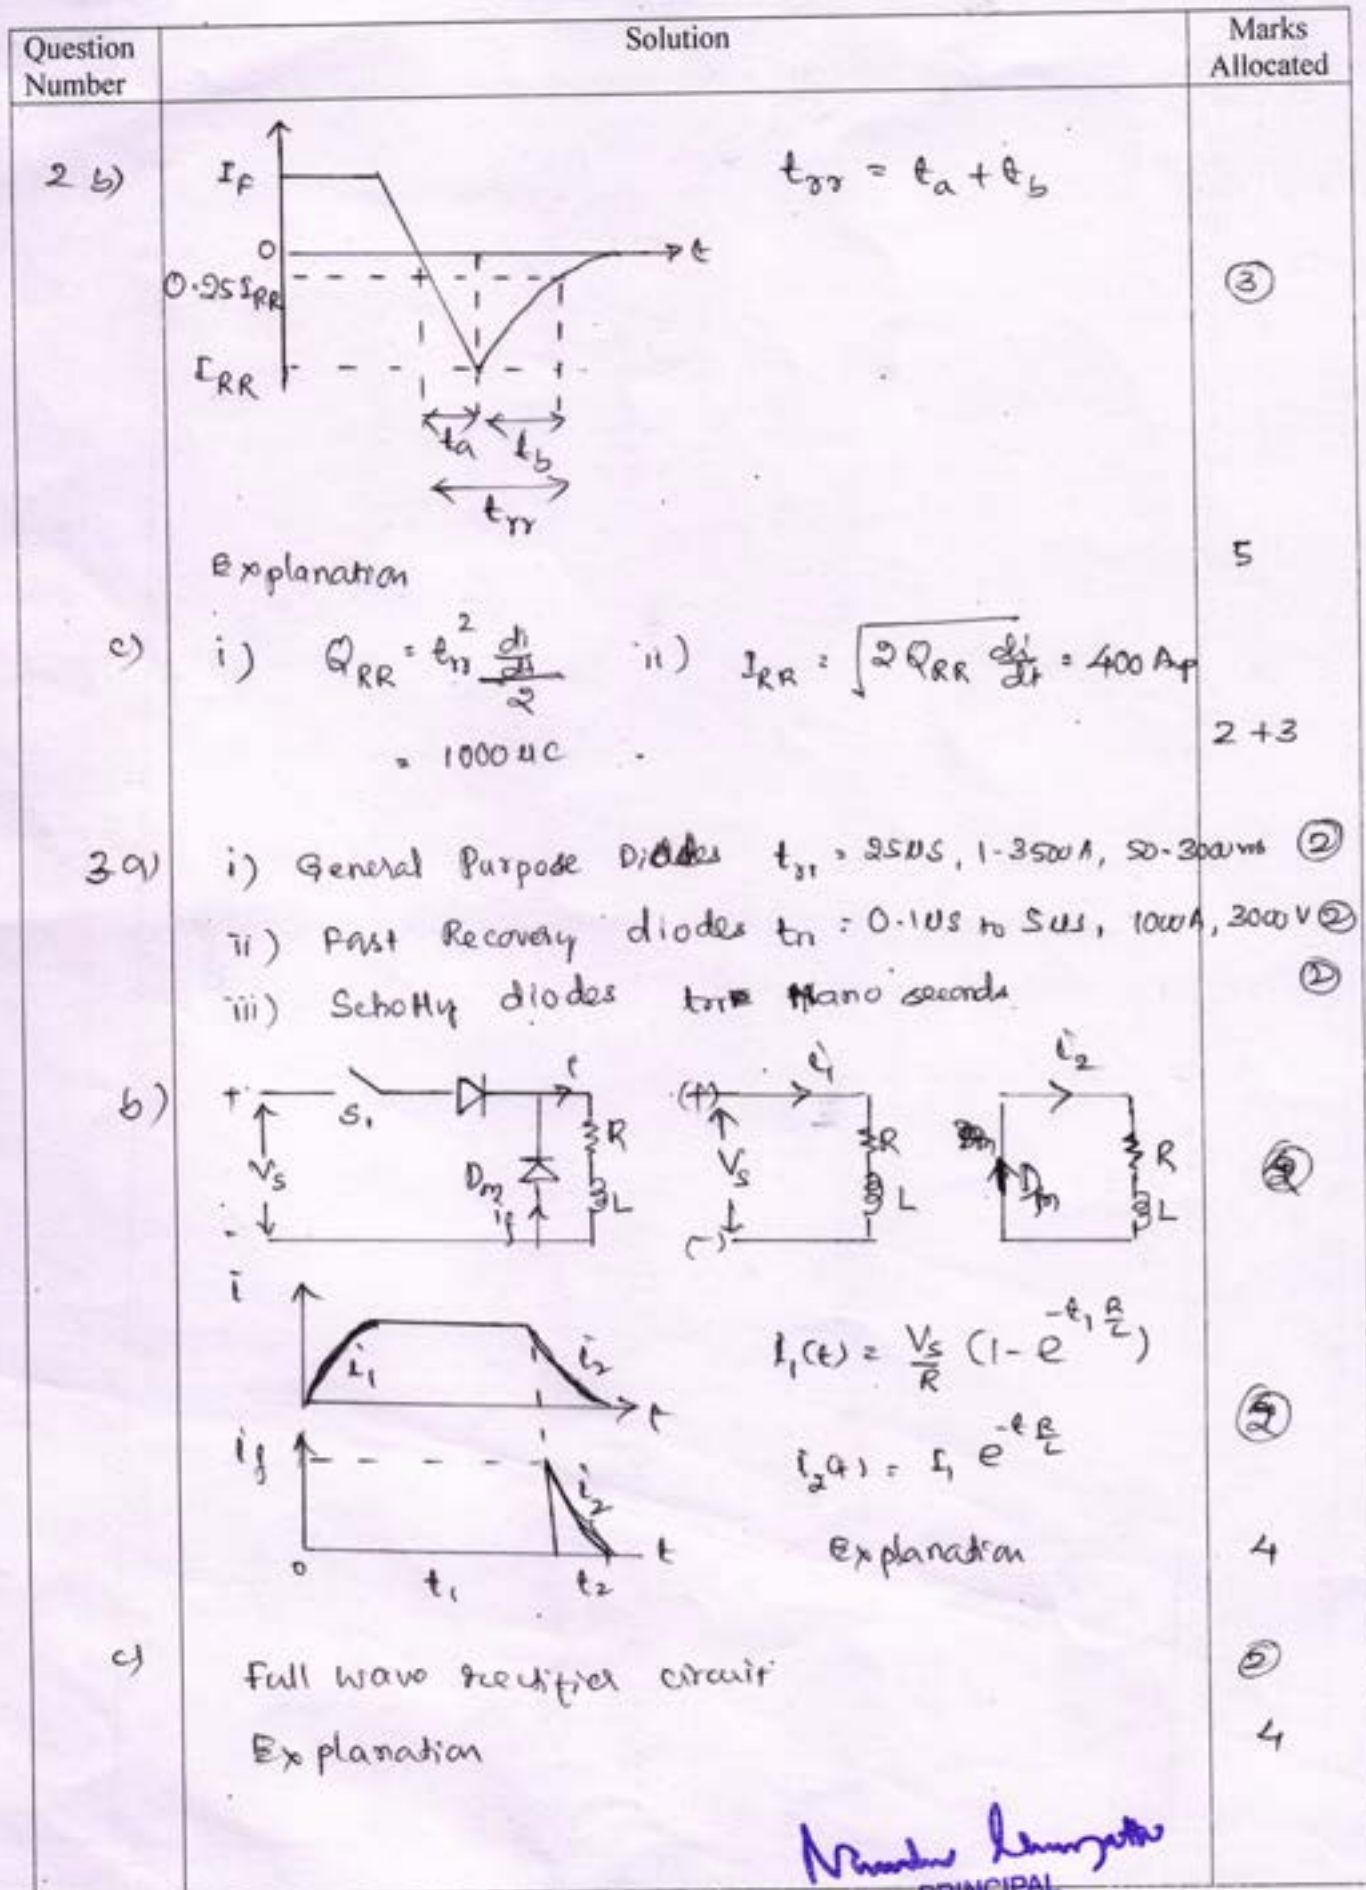 Question Number
Solution
Marks Allocated
2 b)
I_F
0
0.25 I_RR
I_RR
t
t_a
t_b
t_rr
t_rr = t_a + t_b
3
Explanation
5
c)
i) Q_RR = t_rr^2 di/dt / 2
= 1000 uC
ii) I_RR = √2 Q_RR di/dt = 400 Amp
2 + 3
3 a)
i) General Purpose Diodes t_rr = 25us, 1-3500A, 50-3000 2
ii) Fast Recovery diodes t_rr = 0.1us to 5us, 1000A, 3000 V 2
iii) Schottky diodes t_rr = Nano seconds 2
b)
+ S1 i
Vs
Dm
if
R
L
-
(+) i1
Vs
R
L
(-)
i2
Dm
R
L
i
i1
i2
t
i1(t) = Vs/R (1 - e^-t1 R/L)
2
if
i2
0
t1
t2
t
i2(t) = I1 e^-t R/L
Explanation
4
c)
Full wave rectifier circuit
2
Explanation
4
PRINCIPAL